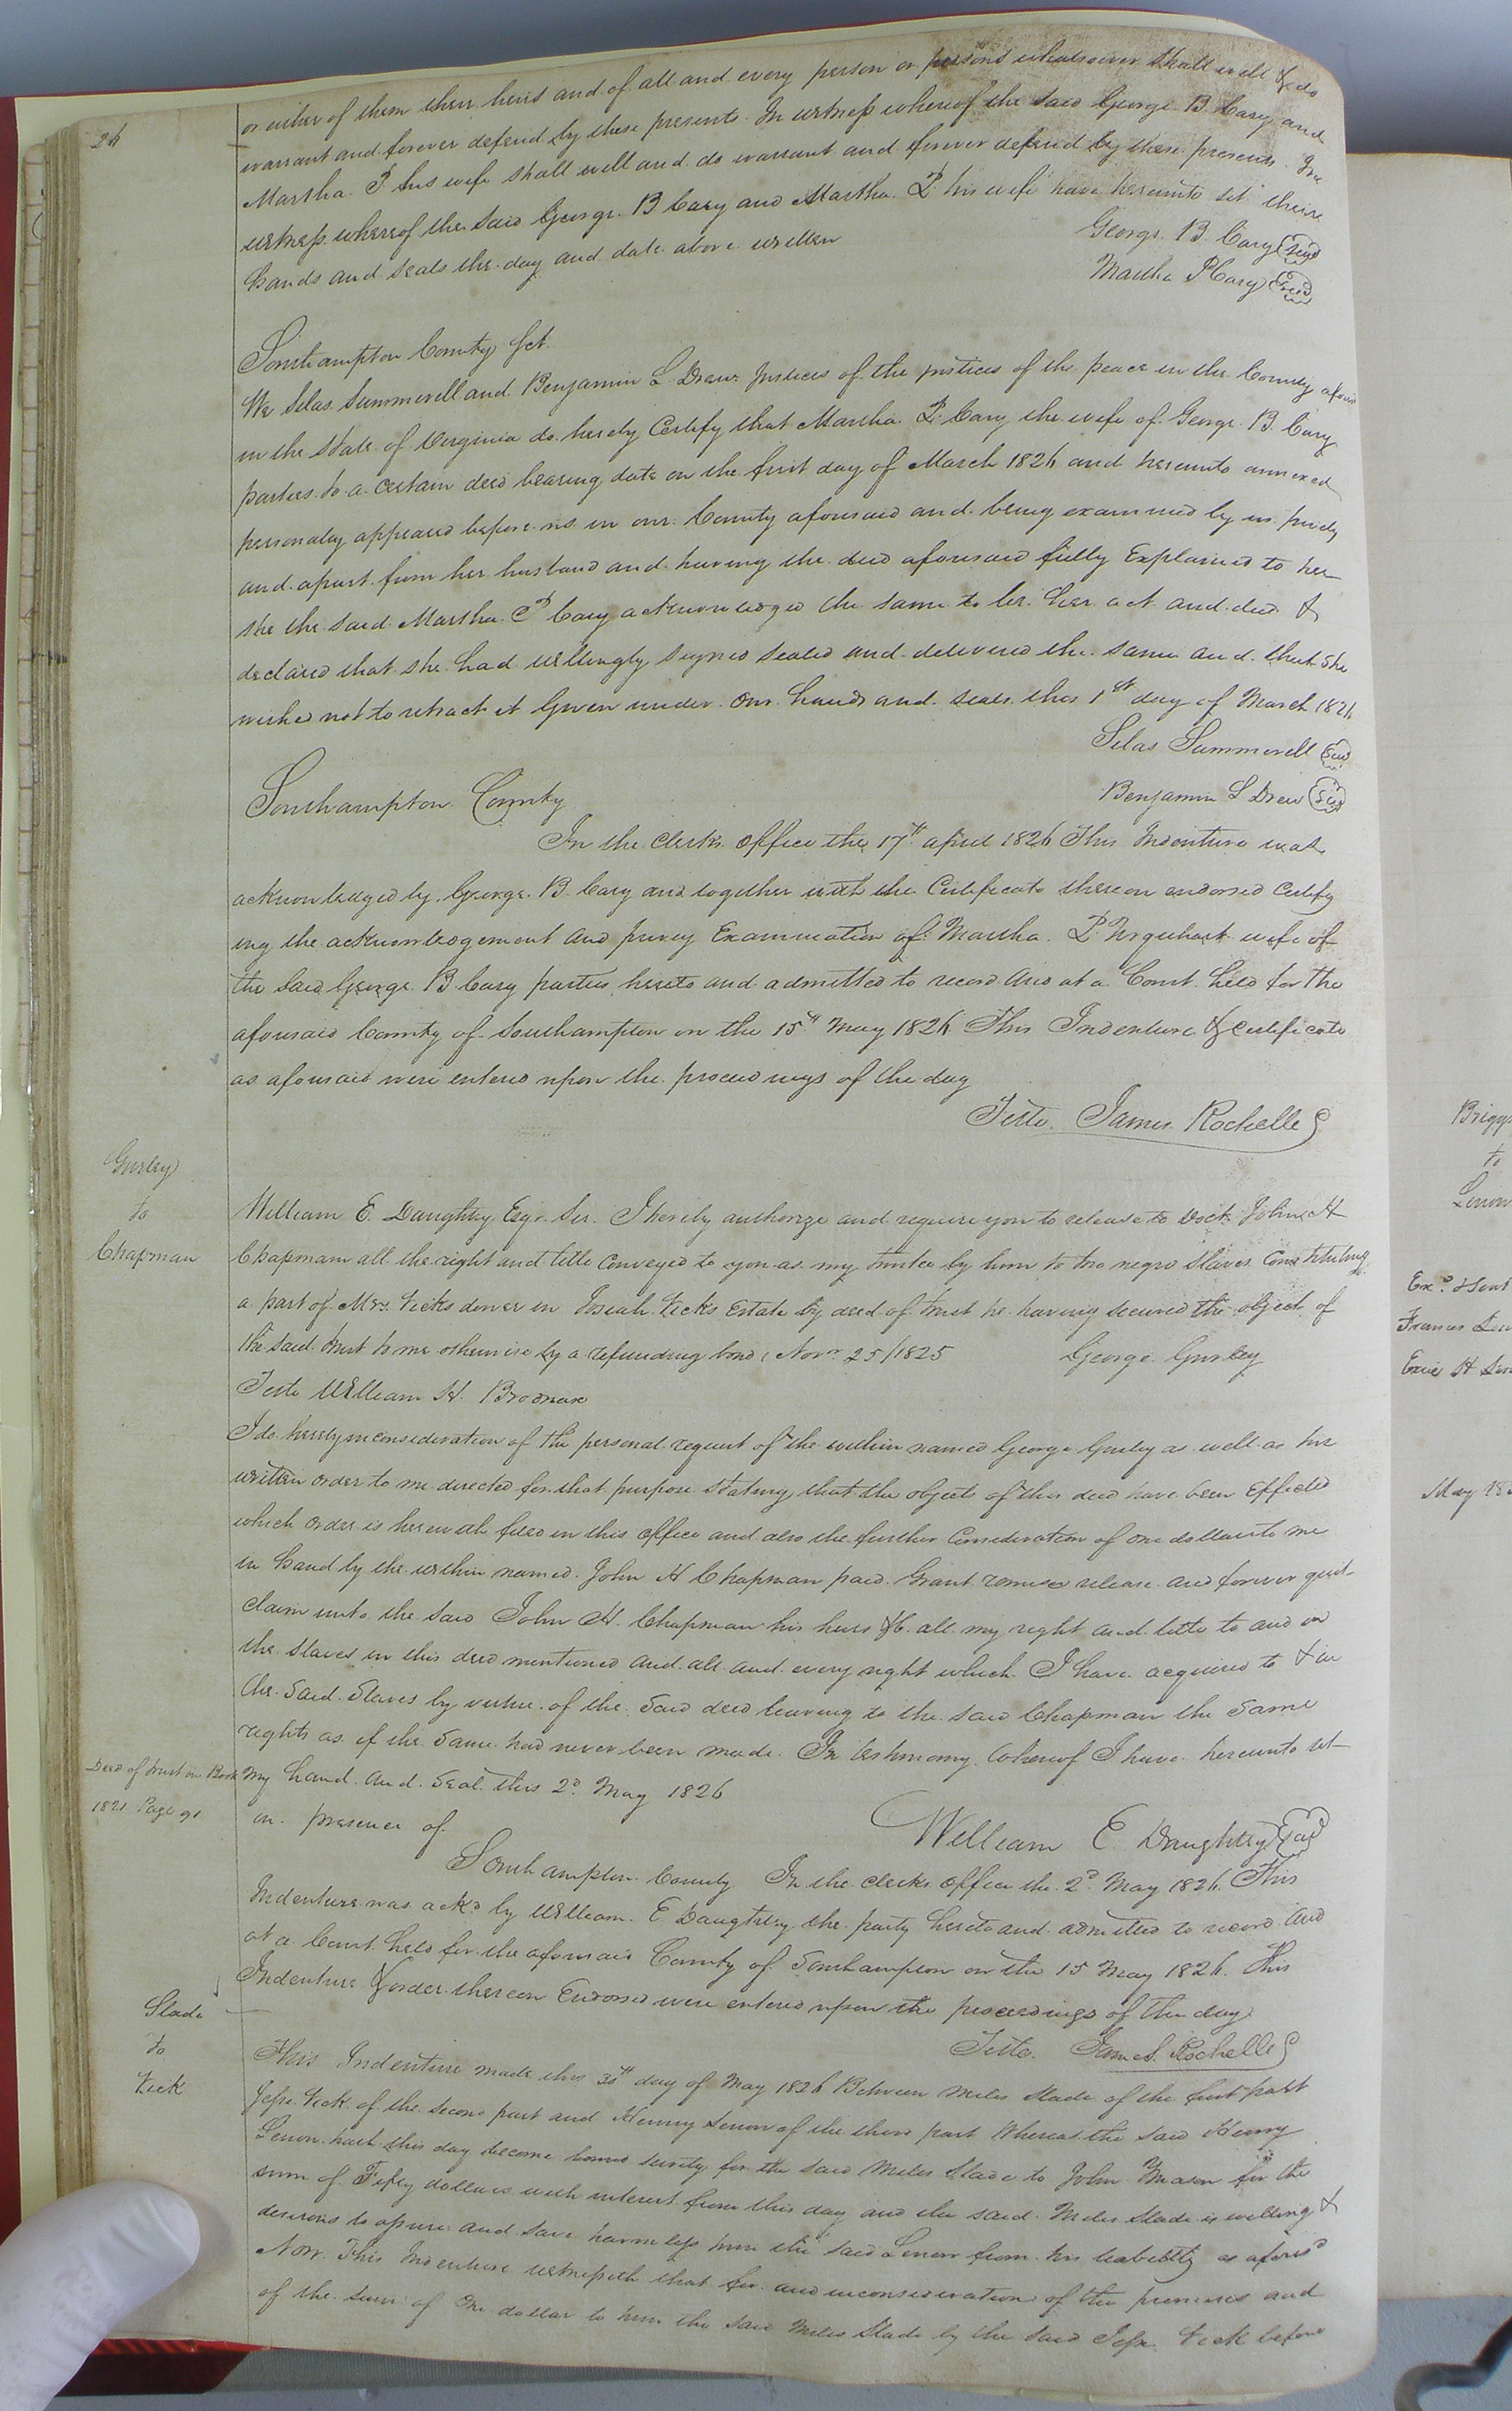 26
or either of them their heirs and of all and every person or persons whatsoever shall well & do
warrant and forever defend by these presents. In witness whereof the said George B Cary and
Martha P his wife shall well and do warrant and forever defend by these presents. In
witness whereof the said George B Cary and Martha P his wife have hereunto set their
hands and seals the day and date above written
George B. Cary Seal
Martha P Cary Seal
Southampton County Sct.
We Silas Summerell and Benjamin L Drew Justices of the justices of the peace in the County afores
in the State of Virginia do hereby Certify that Martha P Cary the wife of George B. Cary
parties to a certain deed bearing date on the first day of March 1826 and hereunto annexed
personaley appeared before us in our County aforesaid and being examined by us privily
and apart from her husband and having the deed aforesaid fully Explained to her
she the said Martha P Cary acknowledged the same to be her act and deed &
declared that she had willingly signed sealed and delivered the same and that she
wished not to retract it Given under our hands and seals this 1st day of March 1826
Silas Summerell Seal
Benjamin L Drew Seal
Southampton County
In the Clerks office the 17th april 1826 This Indenture was
acknowledged by George B. Cary and together with the Certificate thereon endorsed Certify
ing the acknowledgement and privey Examination of Martha P Urquhart wife of
the said George B Cary parties hereto and admitted to record and at a Court held for the
aforesaid County of Southampton on the 15th May 1826 This Indenture & Certificate
as aforesaid were entered upon the proceedings of the day
Teste James Rochelle
Gurley
to
Chapman
William E. Daughtry Esqr. Sir. I hereby authorize and require you to release to Doct John H
Chapman all the right and title conveyed to you as my trustee by him to two negro slaves Constituting
a part of Mrs. Vicks dower in Josiah Vicks Estate by deed of trust he having secured the object of
the said trust to me otherwise by a refunding bond Novr 25/1825 George Gurley
Teste William H. Brodnax
I do hereby in consideration of the personal request of the within named George Gurley as well as his
written order to me directed for that purpose stating that the objects of this deed have been Effected
which order is herewith filed in this office and also the further Consideration of one dollar to me
in hand by the within named John H Chapman paid Grant remise release and forever quit
claim unto the said John H. Chapman his heirs &c. all my right and title to and in
the slaves in this deed mentioned and all and every right which I have acquired to & in
the said Slaves by virtue of the said deed leaving to the said Chapman the same
rights as if the same had never been made. In testimony whereof I have hereunto set
Deed of trust in Book
1821 Page 91
my hand and Seal this 2d May 1826
in presence of
William E. Daughtry Seal
Southampton County In the clerks office the 2d May 1826. This
Indenture was ackd by William E Daughtrey the party hereto and admitted to record and
at a Court held for the aforesaid County of Southampton on the 15 May 1826. This
Indenture & order thereon Endorsed were entered upon the proceedings of the day
Teste. James Rochelle
Slade
to
Vick
This Indenture made this 30th day of May 1826 Between Miles Slade of the first part
Jesse Vick of the second part and Henry Lenow of the third part Whereas the said Henry
Lenow hath this day become bound surity for the said Miles Slade to John Mason for the
sum of Fifty dollars with interest from this day and the said Miles Slade is willing &
desirous to assure and save harmless him the said Lenow from his leability as aforesd
Now This Indenture witnesseth that for and in consideration of the premises and
of the sum of One dollar to him the said Miles Slade by the said Jesse Vick before
Briggs
to
Lenow
Exd. & sent
Frances
May 18